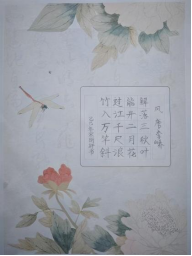 风 唐 李峤
解落三秋叶
能开二月花
过江千尺浪
竹入万竿斜